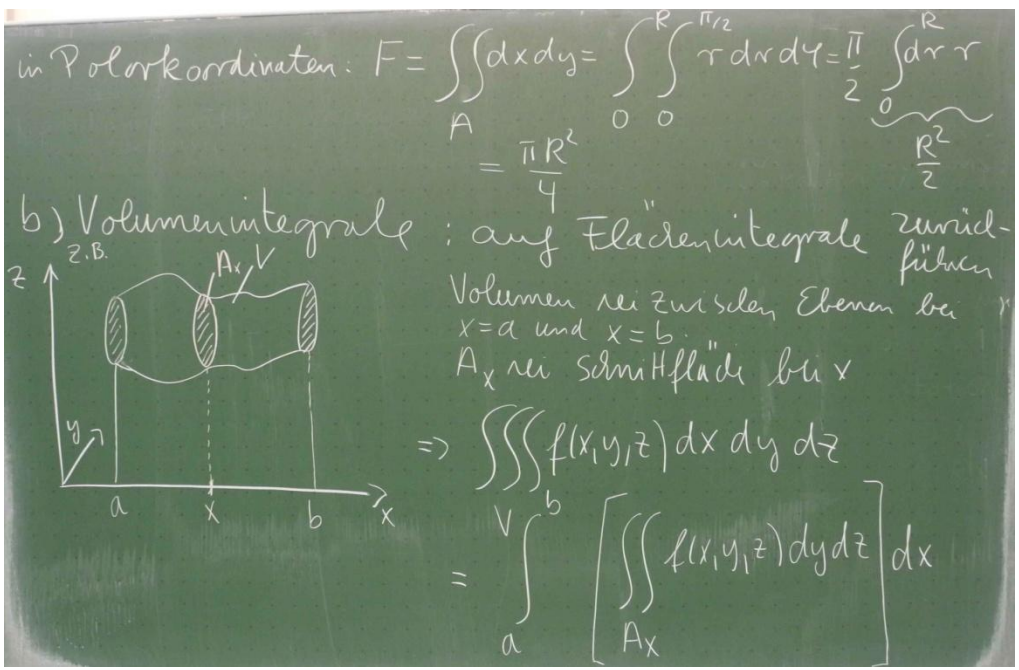 in Polarkoordinaten: F = ∬_A dxdy = ∫_0^R ∫_0^{π/2} r dr dφ = π/2 ∫_0^R dr r
R²/2
= πR²/4
b) Volumenintegrale : auf Flächenintegrale zurück-
führen
z.B.
z
A_x V
y
a x b x
Volumen sei zwischen Ebenen bei
x=a und x=b.
A_x sei Schnittfläche bei x
=> ∭_V f(x,y,z) dx dy dz
= ∫_a^b [ ∬_{A_x} f(x,y,z) dy dz ] dx